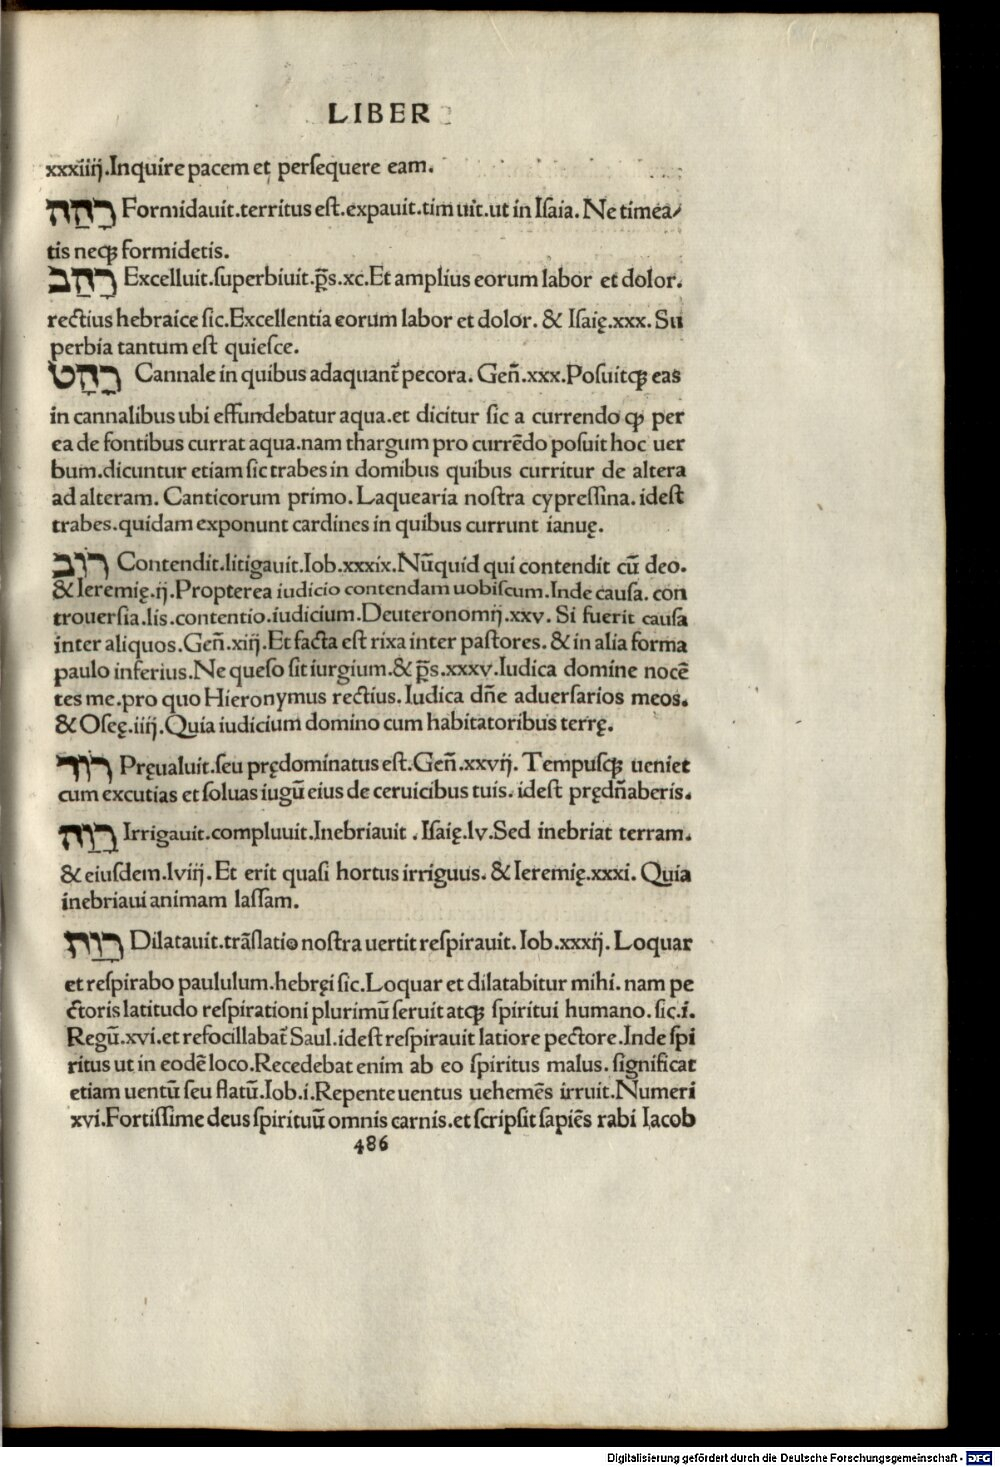 LIBER
xxxiiij.Inquire pacem et perſequere eam.
רָהָה Formidauit.territus eſt.expauit.timuit.ut in Iſaia. Ne timea/
tis neqꝫ formidetis.
רָהַב Excelluit.ſuperbiuit.p̃s.xc.Et amplius eorum labor et dolor.
rectius hebraice ſic.Excellentia eorum labor et dolor. & Iſaię.xxx. Su
perbia tantum eſt quieſce.
רָהַט Cannale in quibus adaquant̃ pecora. Geñ.xxx.Poſuitqꝫ eas
in cannalibus ubi effundebatur aqua.et dicitur ſic a currendo ꝙ per
ea de fontibus currat aqua.nam thargum pro currēdo poſuit hoc uer
bum.dicuntur etiam ſic trabes in domibus quibus curritur de altera
ad alteram. Canticorum primo. Laquearia noſtra cypreſſina. ideſt
trabes.quidam exponunt cardines in quibus currunt ianuę.
רוֹב Contendit.litigauit.Iob.xxxix.Nūquid qui contendit cū deo.
& Ieremię.ij.Propterea iudicio contendam uobiſcum.Inde cauſa. con
trouerſia.lis.contentio.iudicium.Deuteronomij.xxv. Si fuerit cauſa
inter aliquos.Geñ.xiij.Et facta eſt rixa inter paſtores. & in alia forma
paulo inferius.Ne queſo ſit iurgium.& p̃s.xxxv.Iudica domine nocē
tes me.pro quo Hieronymus rectius.Iudica dñe aduerſarios meos.
& Oſeę.iiij.Quia iudicium domino cum habitatoribus terrę.
רוֹד Pręualuit.ſeu prędominatus eſt.Geñ.xxvij. Tempuſqꝫ ueniet
cum excutias et ſoluas iugū eius de ceruicibus tuis. ideſt prędñaberis.
רָוָה Irrigauit.compluuit.Inebriauit . Iſaię.lv.Sed inebriat terram.
& eiuſdem.lviij.Et erit quaſi hortus irriguus. & Ieremię.xxxi. Quia
inebriaui animam laſſam.
רָוַח Dilatauit.trāſlatio noſtra uertit reſpirauit. Iob.xxxij. Loquar
et reſpirabo paululum.hebręi ſic.Loquar et dilatabitur mihi. nam pe
ctoris latitudo reſpirationi plurimū ſeruit atqꝫ ſpiritui humano. ſic.i.
Regū.xvi.et refocillabat̃ Saul.ideſt reſpirauit latiore pectore.Inde ſpi
ritus ut in eodē loco.Recedebat enim ab eo ſpiritus malus. ſignificat
etiam uentū ſeu flatū.Iob.i.Repente uentus uehemēs irruit.Numeri
xvi.Fortiſſime deus ſpirituū omnis carnis.et ſcripſit ſapiēs rabi Iacob
486
Digitalisierung gefördert durch die Deutsche Forschungsgemeinschaft - DFG